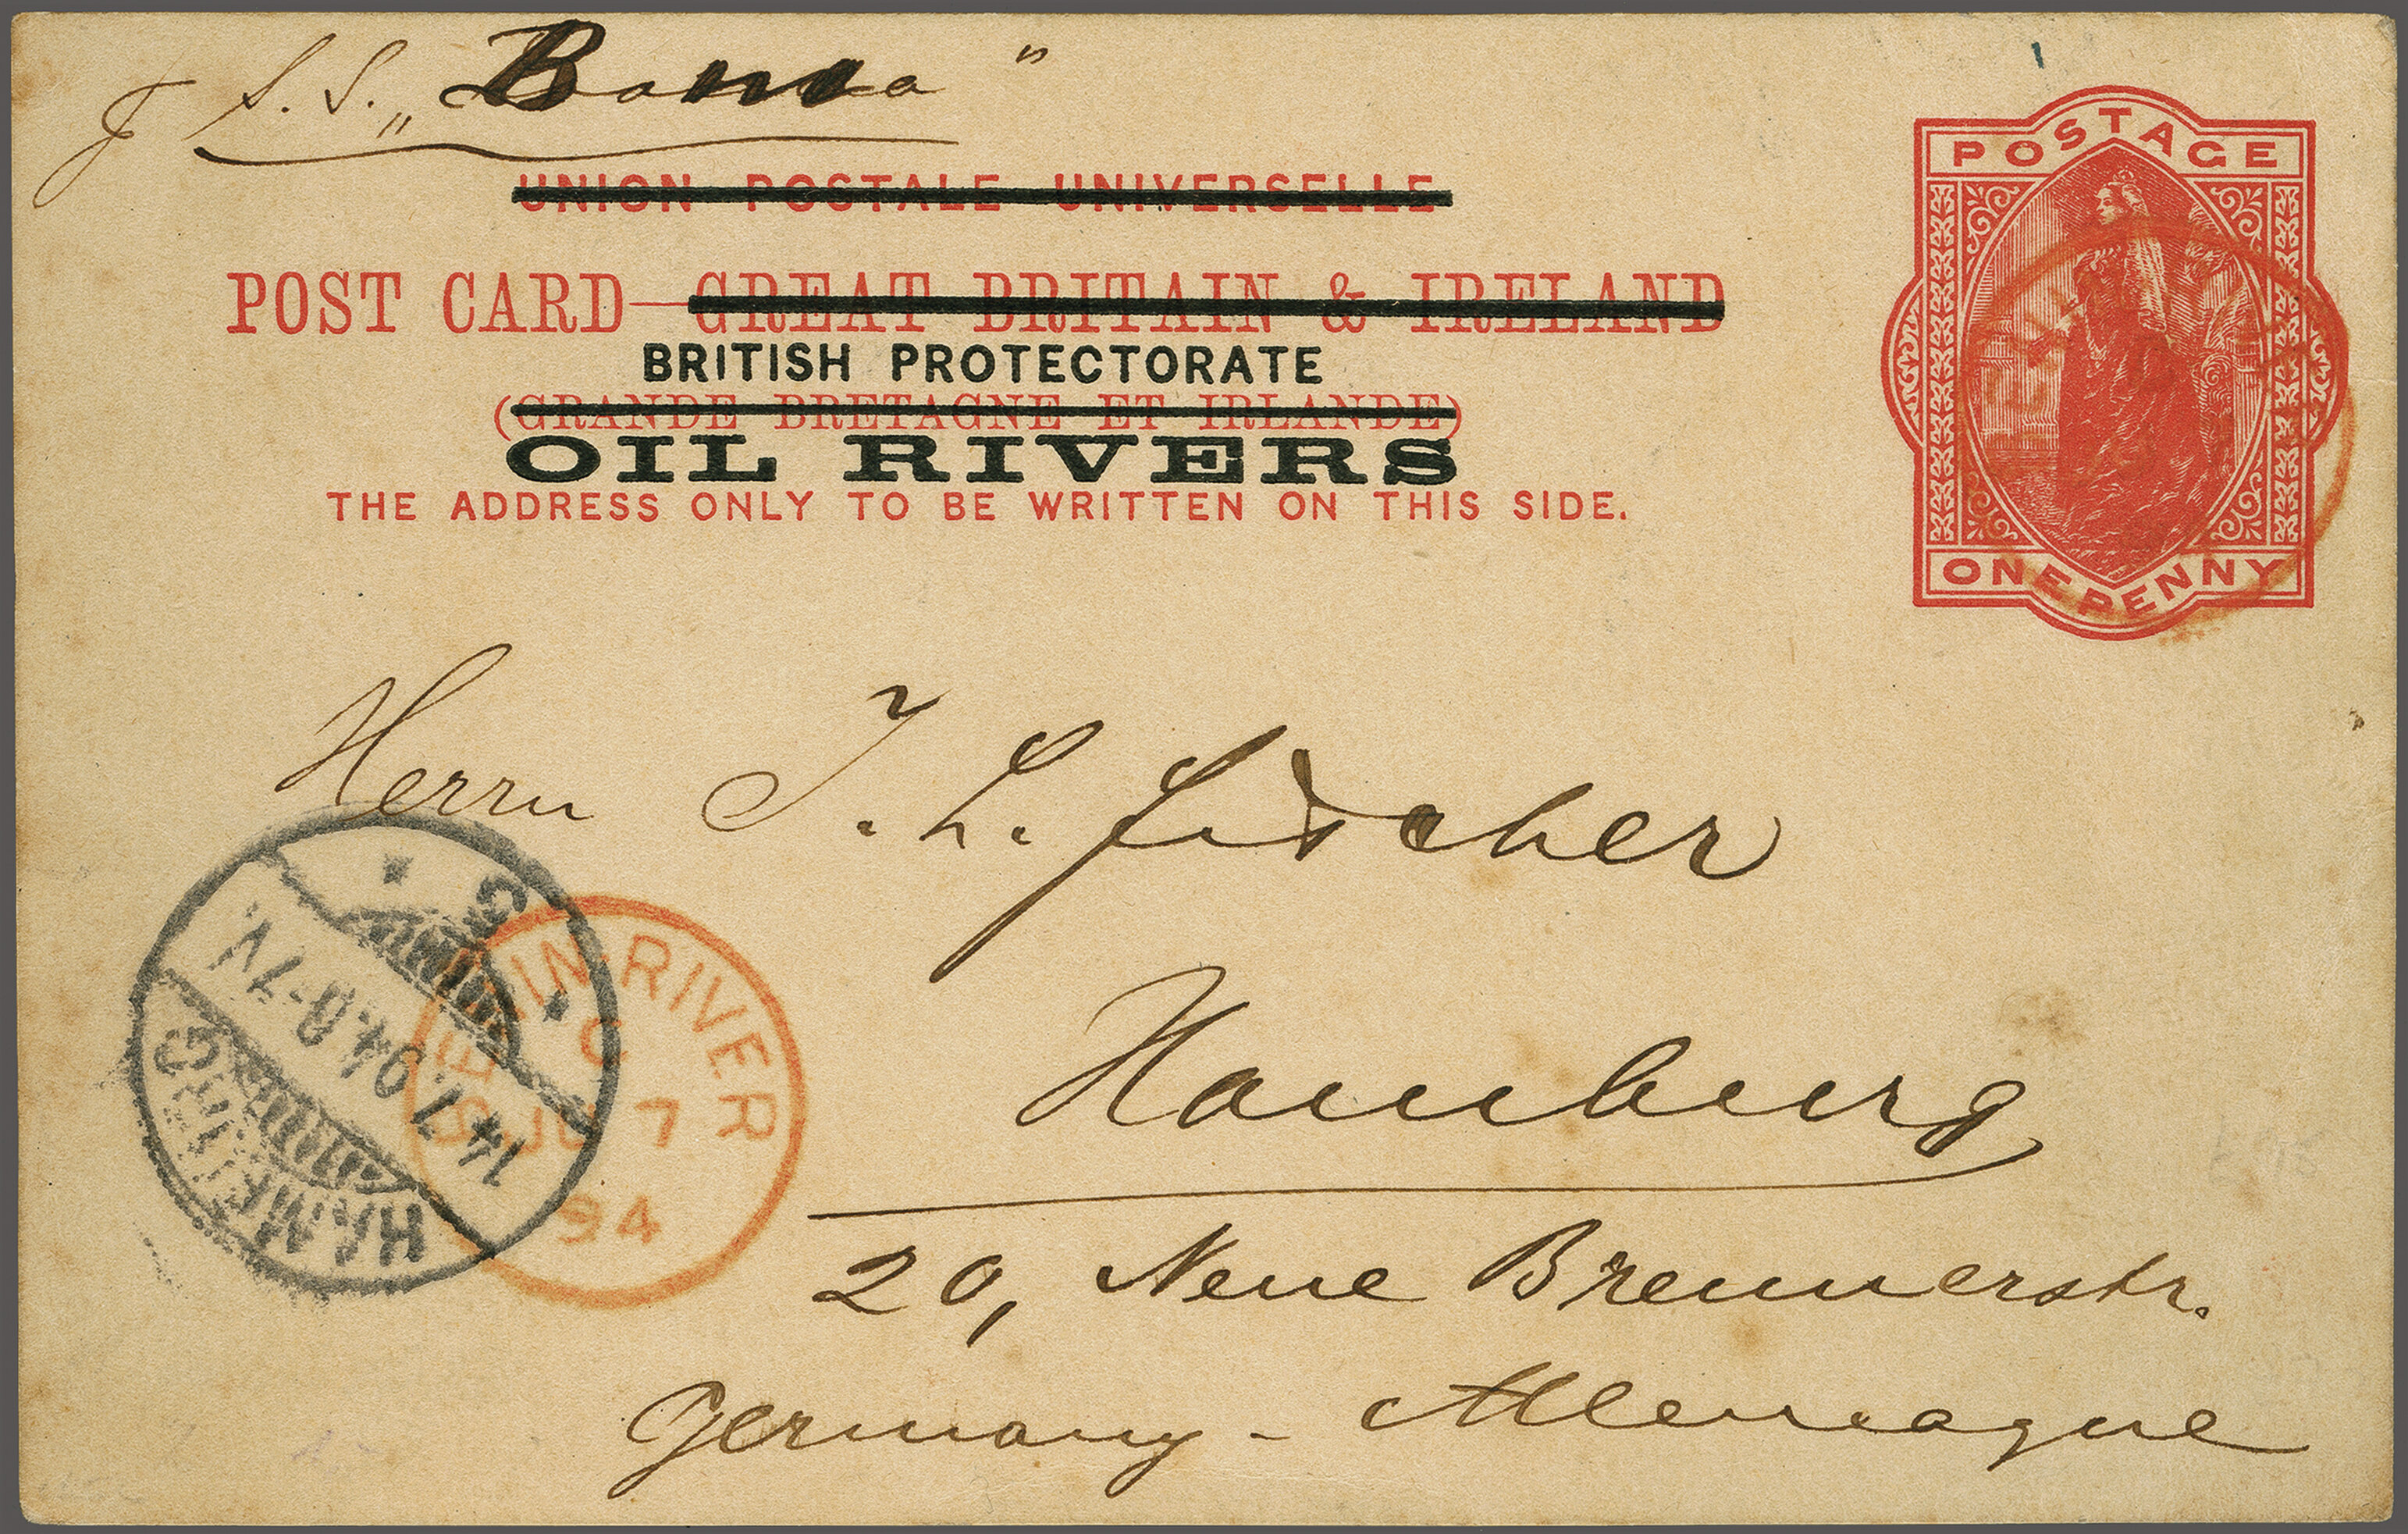 p S. S. „Bonna"
POSTAGE
UNION POSTALE UNIVERSELLE
POST CARD—GREAT BRITAIN & IRELAND
BRITISH PROTECTORATE
(GRANDE BRETAGNE ET IRLANDE)
OIL RIVERS
THE ADDRESS ONLY TO BE WRITTEN ON THIS SIDE.
ONE PENNY
Herrn J. L. Fischer
Hamburg
20, Neue Brennerstr.
Germany - Allemagne
HAMBURG
14.7.94.8-9V.
* 5 *
BENIN·RIVER
C
JU 7
94